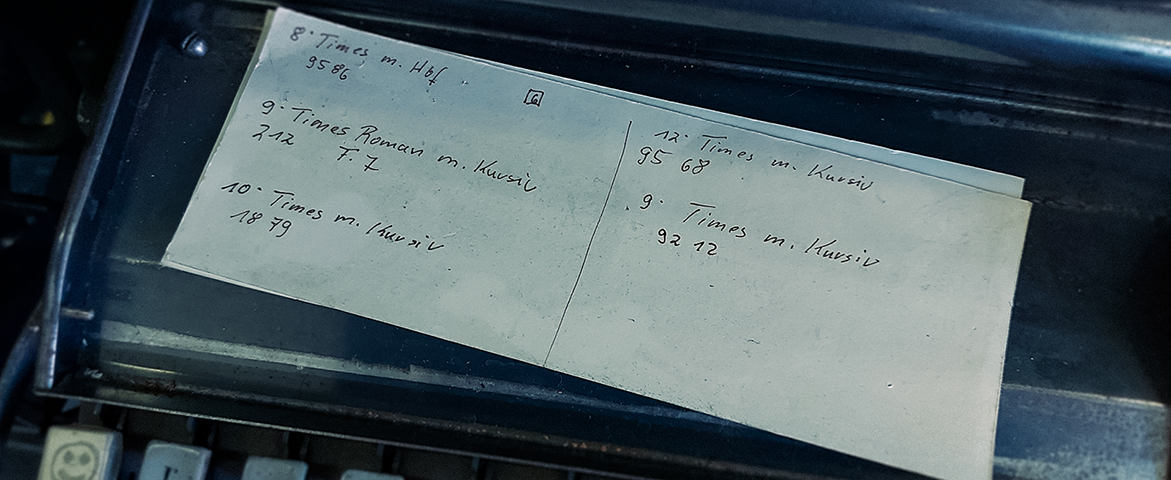 8· Times m. Hbf
9586
6
9· Times Roman m. Kursiv
212 7.7
10· Times m. Kursiv
18 79
12· Times m. Kursiv
95 68
9· Times m. Kursiv
92 12